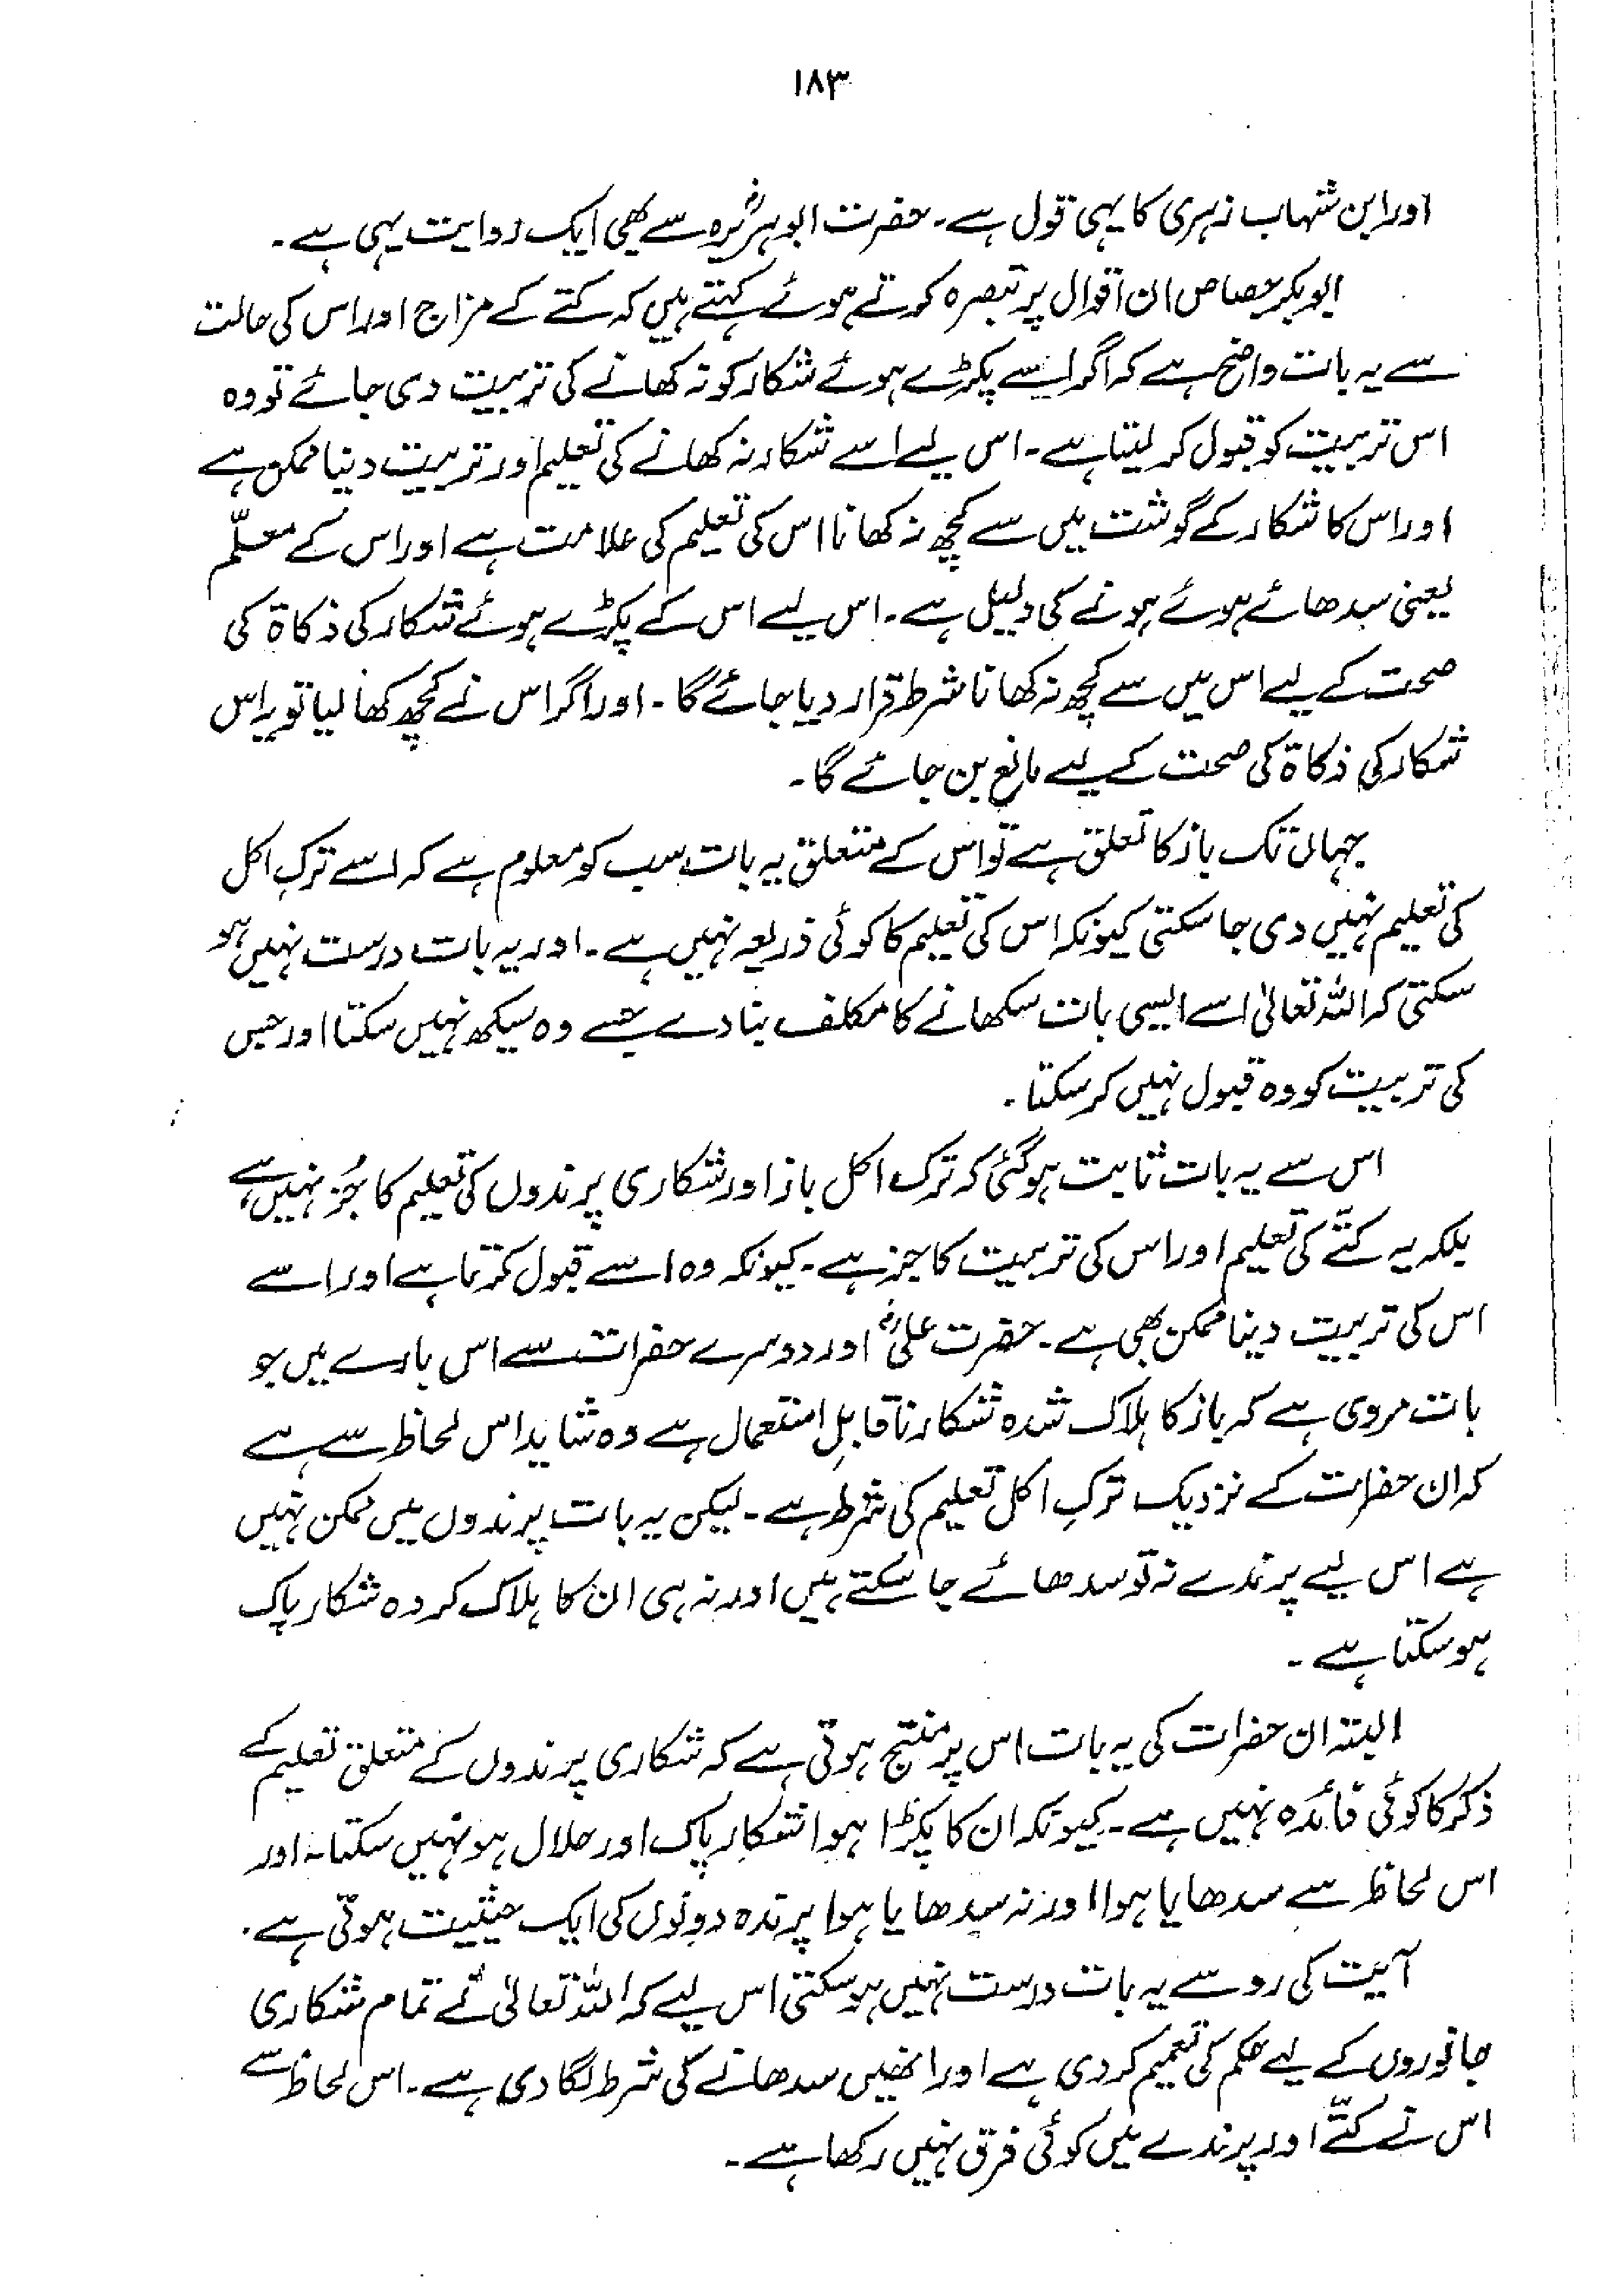 ۱۸۳
اور ابن شہاب زہری کا یہی قول ہے۔ حضرت ابوہریرہؓ سے بھی ایک روایت یہی ہے۔
ابوبکر جصاص ان اقوال پر تبصرہ کرتے ہوئے کہتے ہیں کہ کتے کے مزاج اور اس کی حالت
سے یہ بات واضح ہے کہ اگر اسے پکڑے ہوئے شکار کو نہ کھانے کی تربیت دی جائے تو وہ
اس تربیت کو قبول کر لیتا ہے۔ اس لیے اسے شکار نہ کھانے کی تعلیم اور تربیت دینا ممکن ہے
اور اس کا شکار کے گوشت میں سے کچھ نہ کھانا اس کی تعلیم کی علامت ہے اور اس کے معلّم
یعنی سدھائے ہوئے ہونے کی دلیل ہے۔ اس لیے اس کے پکڑے ہوئے شکار کی ذکاۃ کی
صحت کے لیے اس میں سے کچھ نہ کھانا شرط قرار دیا جائے گا۔ اور اگر اس نے کچھ کھا لیا تو یہ اس
شکار کی ذکاۃ کی صحت کے لیے مانع بن جائے گا۔
جہاں تک باز کا تعلق ہے تو اس کے متعلق یہ بات سب کو معلوم ہے کہ اسے ترکِ اکل
کی تعلیم نہیں دی جا سکتی کیونکہ اس کی تعلیم کا کوئی ذریعہ نہیں ہے۔ اور یہ بات درست نہیں ہو
سکتی کہ اللہ تعالیٰ اسے ایسی بات سکھانے کا مکلف بنا دے جسے وہ سیکھ نہیں سکتا اور جس
کی تربیت کو وہ قبول نہیں کر سکتا۔
اس سے یہ بات ثابت ہو گئی کہ ترک اکل باز اور شکاری پرندوں کی تعلیم کا جُز نہیں ہے
بلکہ یہ کتّے کی تعلیم اور اس کی تربیت کا جز ہے۔ کیونکہ وہ اسے قبول کرتا ہے اور اسے
اس کی تربیت دینا ممکن بھی ہے۔ حضرت علیؓ اور دوسرے حضرات سے اس بارے میں جو
بات مروی ہے کہ باز کا ہلاک شدہ شکار ناقابلِ استعمال ہے وہ شاید اس لحاظ سے ہے
کہ ان حضرات کے نزدیک ترکِ اکل تعلیم کی شرط ہے۔ لیکن یہ بات پرندوں میں ممکن نہیں
ہے اس لیے پرندے نہ تو سدھائے جا سکتے ہیں اور نہ ہی ان کا ہلاک کردہ شکار پاک
ہو سکتا ہے۔
البتہ ان حضرات کی یہ بات اس پر منتج ہوتی ہے کہ شکاری پرندوں کے متعلق تعلیم کے
ذکر کا کوئی فائدہ نہیں ہے۔ کیونکہ ان کا پکڑا ہوا شکار پاک اور حلال ہو نہیں سکتا۔ اور
اس لحاظ سے سدھایا ہوا اور نہ سدھایا ہوا پرندہ دونوں کی ایک حیثیت ہوتی ہے۔
آیت کی رو سے یہ بات درست نہیں ہو سکتی اس لیے کہ اللہ تعالیٰ نے تمام شکاری
جانوروں کے لیے حکم کی تعمیم کر دی ہے اور انھیں سدھانے کی شرط لگا دی ہے۔ اس لحاظ سے
اس نے کتّے اور پرندے میں کوئی فرق نہیں رکھا ہے۔